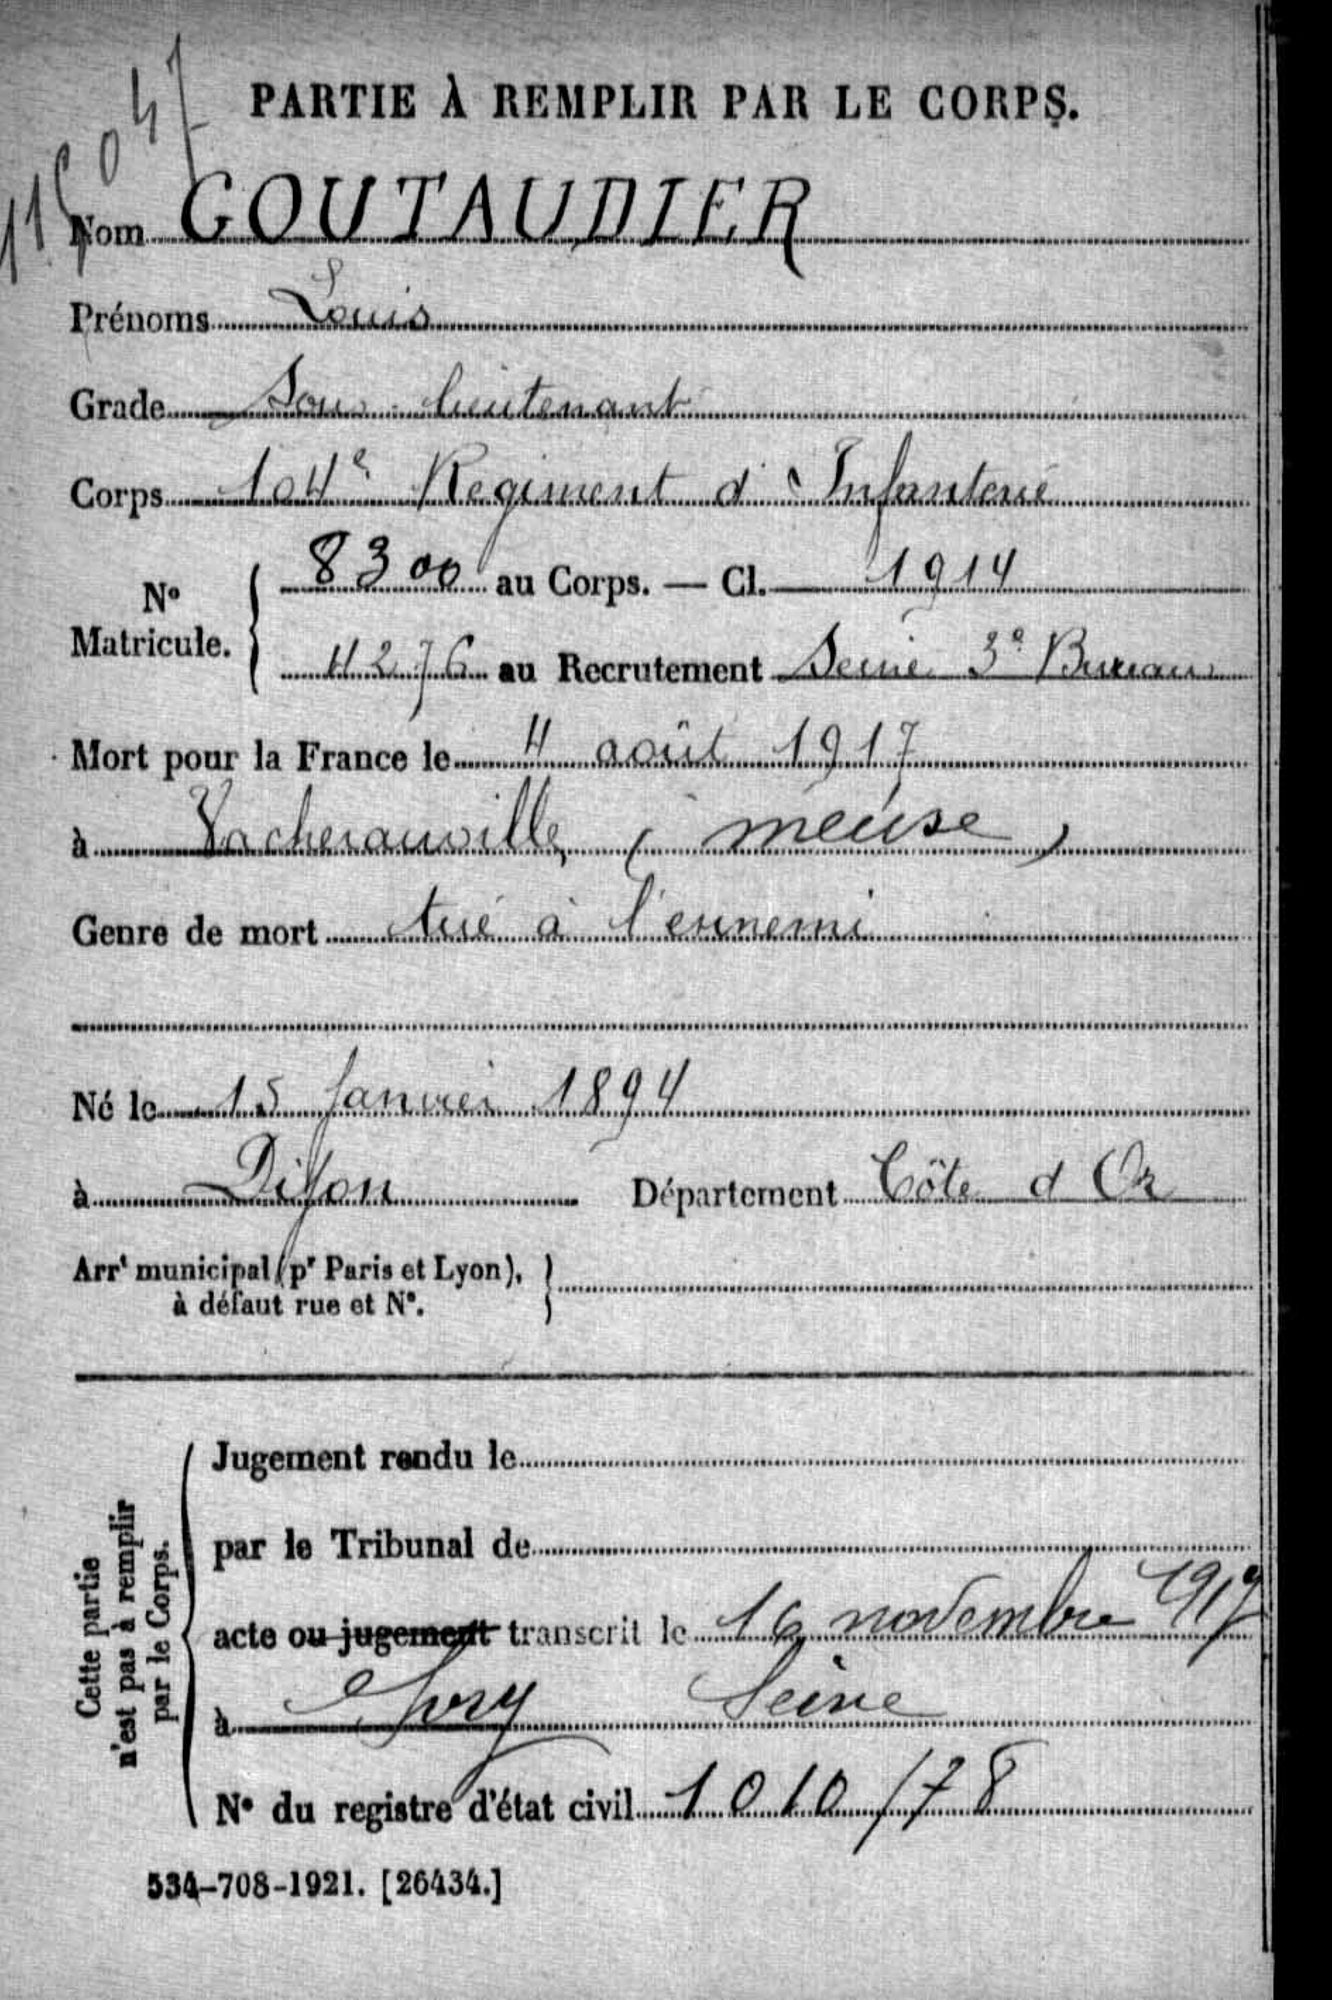 PARTIE À REMPLIR PAR LE CORPS.
Nom GOUTAUDIER
Prénoms Louis
Grade Sous-lieutenant
Corps 104e Régiment d'Infanterie
No Matricule. { 8300 au Corps. — Cl. 1914
4276 au Recrutement Seine 3e Bureau
Mort pour la France le 4 août 1917
à Vacherauville, (meuse)
Genre de mort tué à l'ennemi
Né le 15 Janvier 1894
à Dijon Département Côte d Or
Arrt municipal (pr Paris et Lyon), }
à défaut rue et No.
Cette partie
n'est pas à remplir
par le Corps.
Jugement rendu le
par le Tribunal de
acte ou jugement transcrit le 16 novembre 1917
à Ivry Seine
No du registre d'état civil 1010/78
534-708-1921. [26434.]